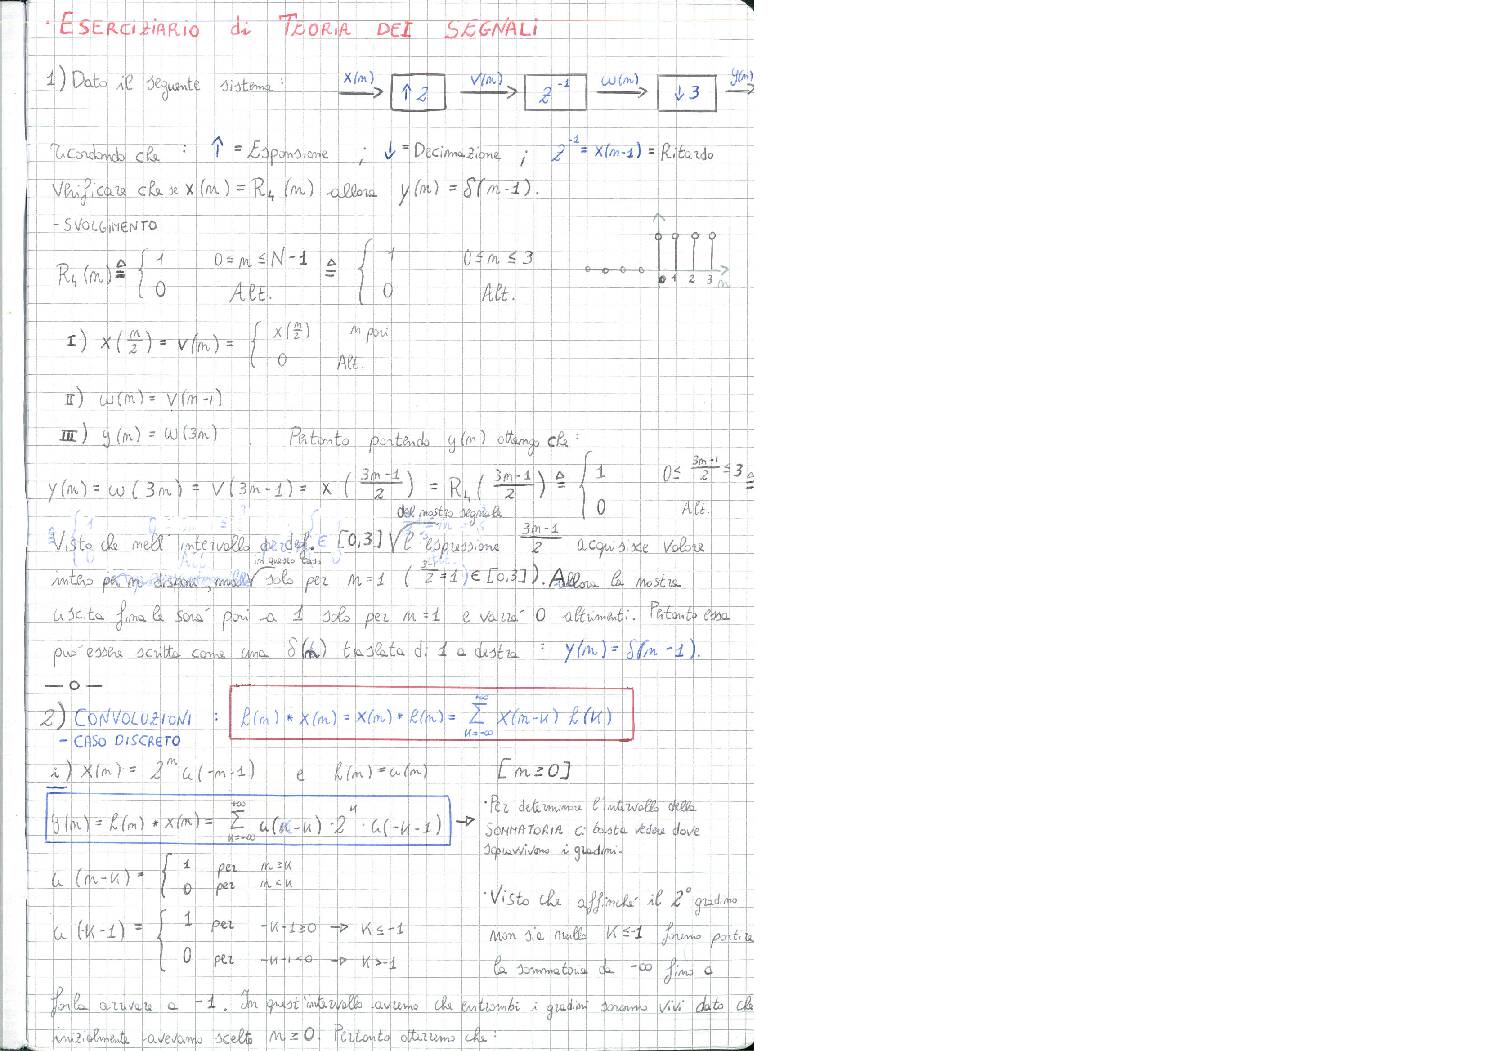 · ESERCIZIARIO di TEORIA DEI SEGNALI
1) Dato il seguente sistema: x(n) ↑2 v(n) z^-1 w(n) ↓3 y(n)
ricordando che : ↑ = Espansione ; ↓ = Decimazione ; z^-1 = x(n-1) = Ritardo
Verificare che se x(n) = R₄(n) allora y(n) = δ(n-1).
- SVOLGIMENTO
R₄(n) ≜ { 1 0≤n≤N-1 ≜ { 1 0≤n≤3
0 Alt. 0 Alt.
0 1 2 3 n
I) x(n/2) = v(n) = { x(n/2) n pari
0 Alt.
II) w(n) = v(n-1)
III) y(n) = w(3n) . Pertanto partendo y(n) ottengo che:
y(n) = w(3n) = v(3n-1) = x((3n-1)/2) = R₄((3n-1)/2) ≜ { 1 0≤ (3n-1)/2 ≤3 ≜
0 Alt.
del nostro segnale
Visto che nell'intervallo ∈ [0,3] l'espressione (3n-1)/2 acquisisce valore
in questo caso
intero per n dispari, solo per n=1 ( =1) ∈ [0,3]). Allora la nostra
uscita finale sarà pari a 1 solo per n=1 e varrà 0 altrimenti. Pertanto essa
può essere scritta come una δ(n) traslata di 1 a destra : y(n) = δ(n-1).
—o—
2) CONVOLUZIONI : h(n) * x(n) = x(n) * h(n) = Σ_{k=-∞}^{+∞} x(n-k) h(k)
- CASO DISCRETO
i) x(n) = 2^n u(-n-1) e h(n) = u(n) [n≥0]
y(n) = h(n) * x(n) = Σ_{k=-∞}^{+∞} u(n-k) · 2^k · u(-k-1) →
· Per determinare l'intervallo della
SOMMATORIA ci basta vedere dove
sopravvivono i gradini.
u(n-k) = { 1 per n≥k
0 per n<k
· Visto che affinché il 2° gradino
u(-k-1) = { 1 per -k-1≥0 → k≤-1
non sia nullo k≤-1 faremo partire
0 per -k-1<0 → k>-1
la sommatoria da -∞ fino a
farla arrivare a -1. In quest'intervallo avremo che entrambi i gradini saranno vivi dato che
inizialmente avevamo scelto n≥0. Pertanto otterremo che: